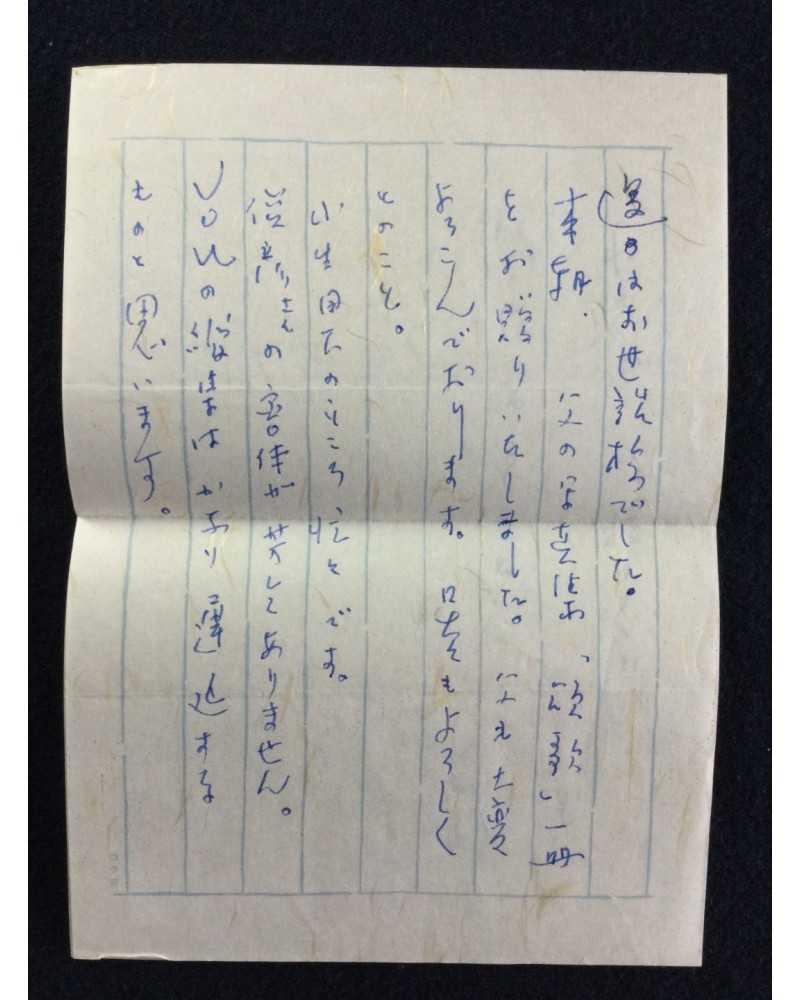 過日はお世話様でした。
本朝、父の写真集、「談歌」一冊
をお贈りいたしました。父も大変
よろこんでおります。呉々もよろしく
とのこと。
小生目下のところ忙々です。
の容体が芳しくありません。
の編集はかなり遅延する
ものと思います。